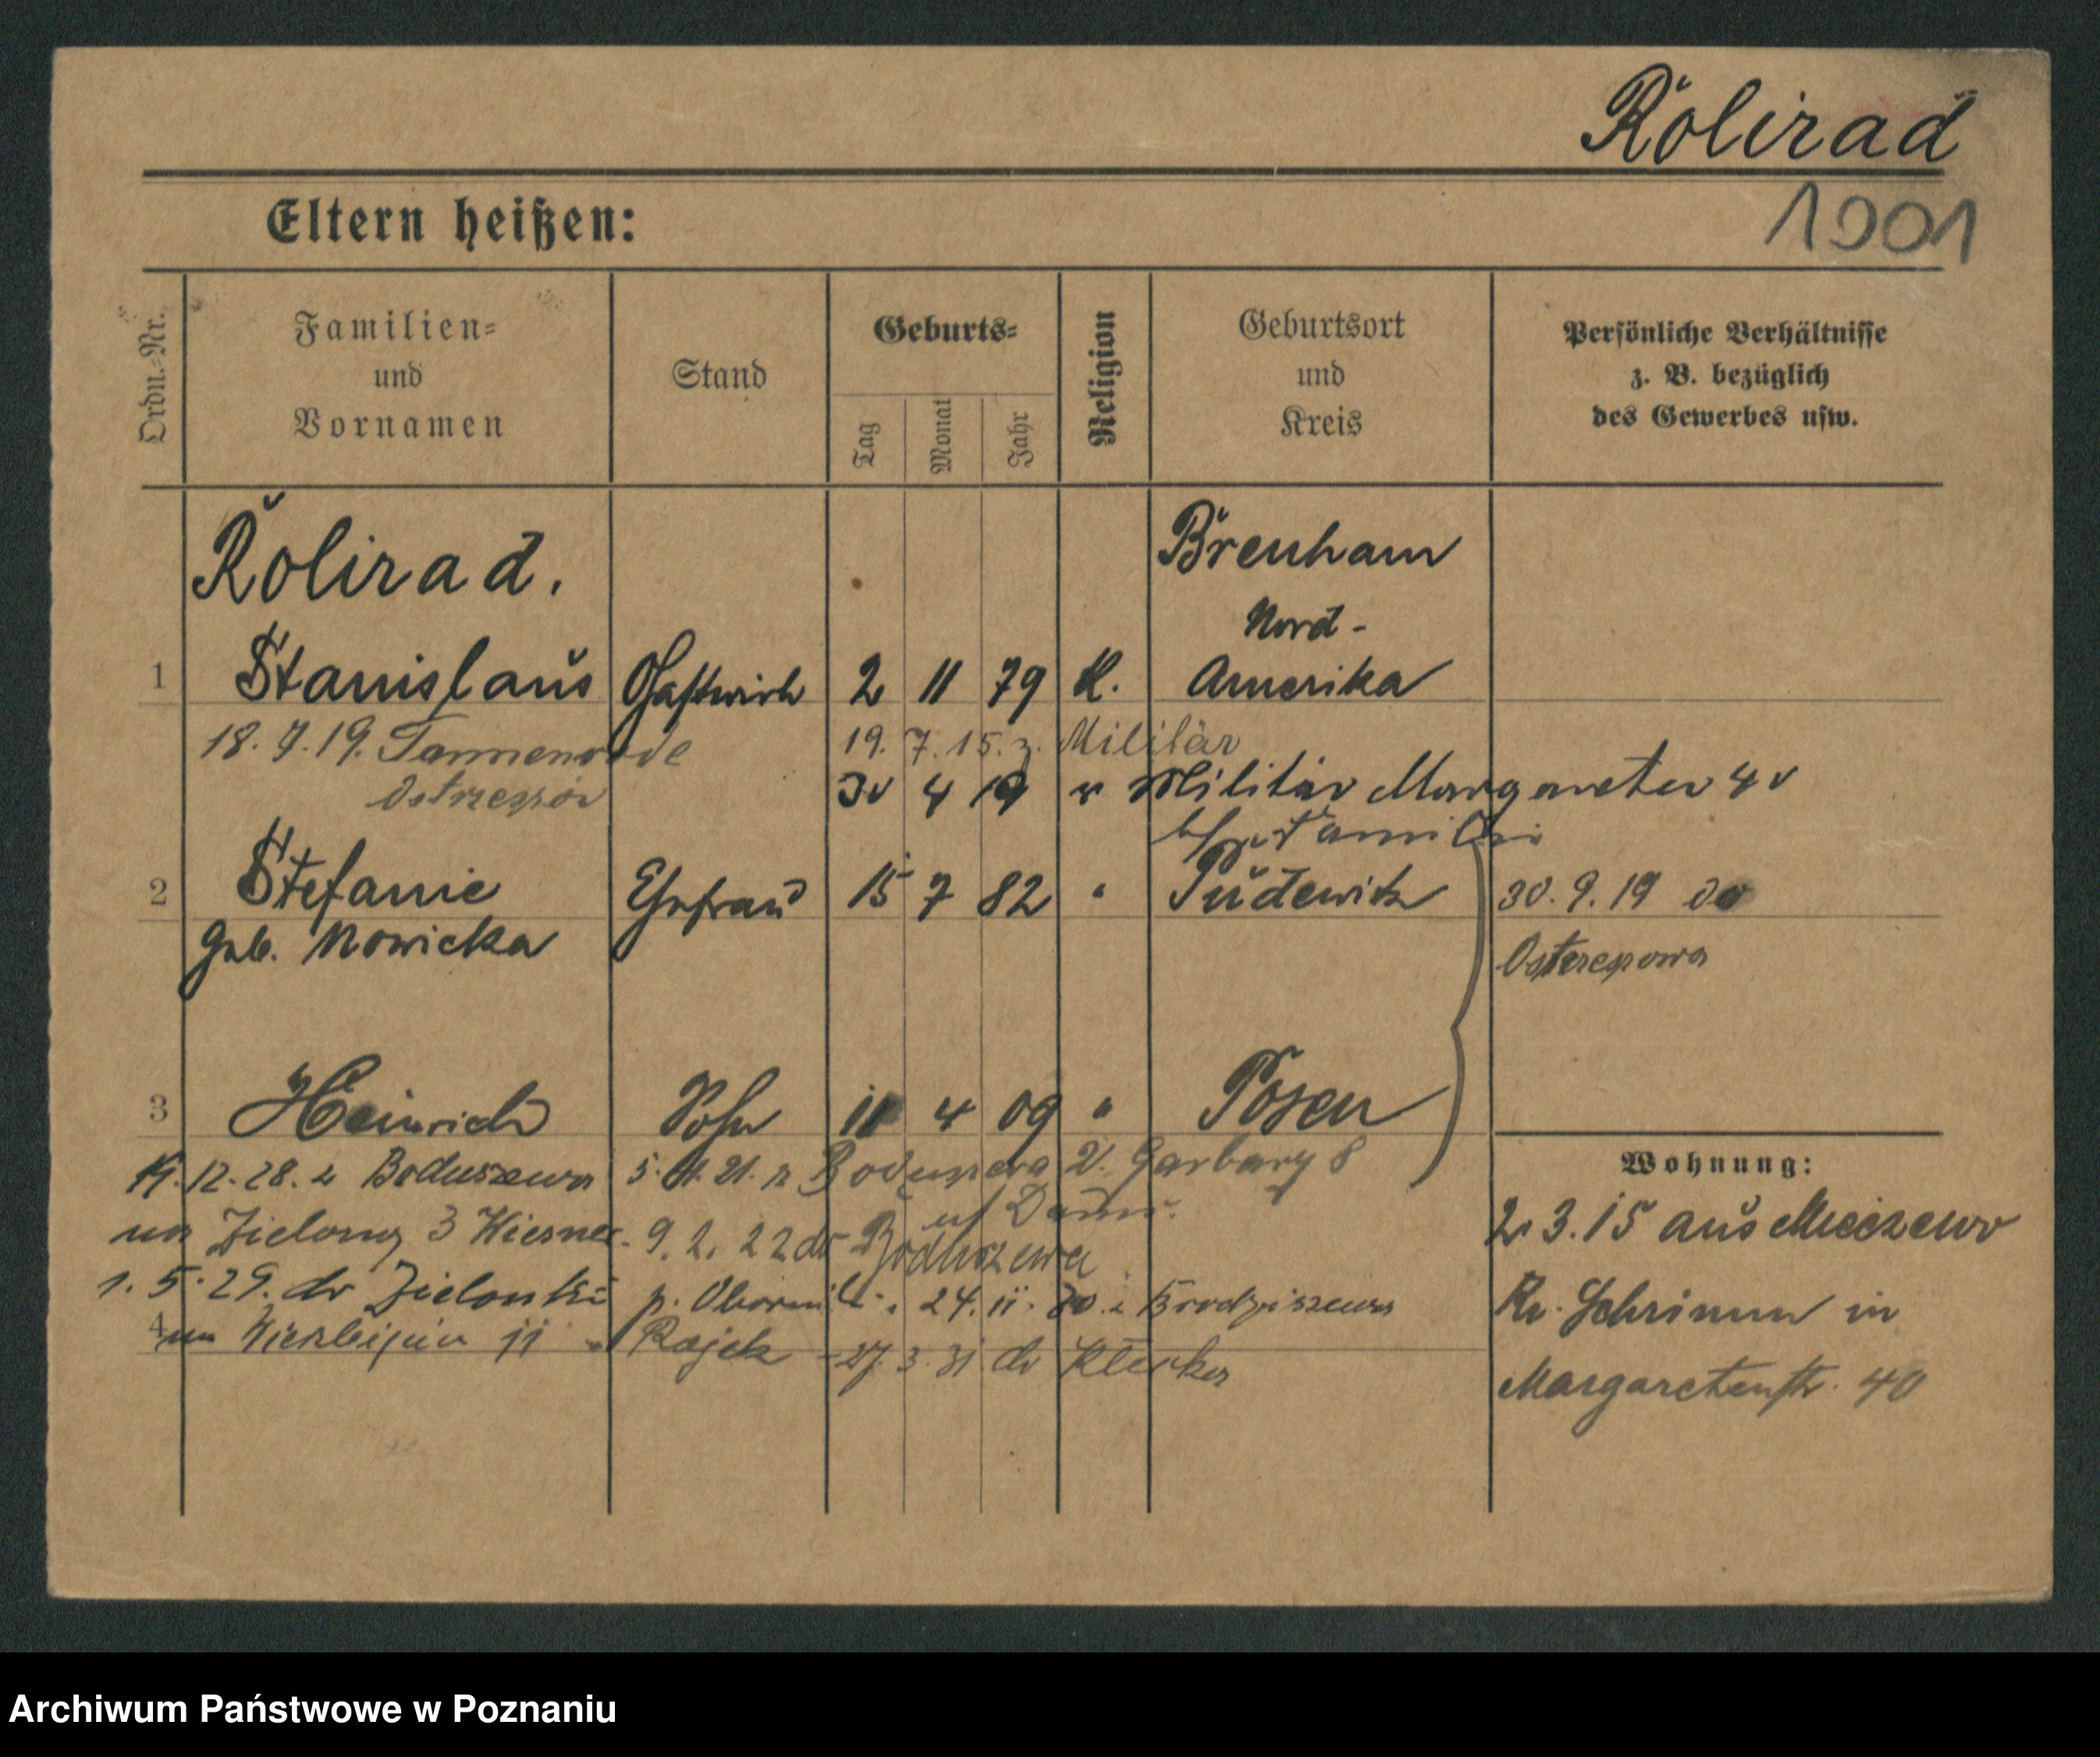 Rolirad
1001
Eltern heißen:
Ordn.-Nr.
Familien-
und
Vornamen
Stand
Geburts-
Tag
Monat
Jahr
Religion
Geburtsort
und
Kreis
Persönliche Verhältnisse
z. B. bezüglich
des Gewerbes usw.
Rolirad.
Brenham
Nord-
1 Stanislaus Gastwirth 2 11 79 K. Amerika
18. 7. 19. Tannenrode 19. 7. 15. z. Militär
4 19 v Militär Margareten
Familie
2 Stefanie Ehefrau 15 7 82 " Pudewitz 30. 9. 19 do
geb. Nowicka
3 Heinrich Sohn 11 4 09 " Posen
12. 28. z Boduszewa 5. 21. z Garbary 8
Wohnung:
2. 3. 15 aus Mieczewo
na Zieloną 3 9. 2. 22 do Boduszewa
1. 5. 29. do Zielonki p. 24. 11. 30. z
Kr. Schrimm in
4 Rajek - 27. 3. 31 do Klecka
Margaretenstr. 40
Archiwum Państwowe w Poznaniu